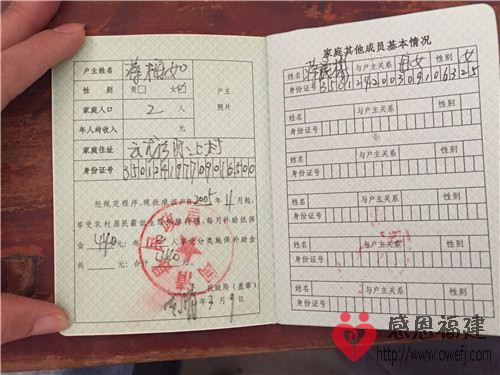 户主姓名
性 别 男□ 女
家庭人口 2 人
年人均收入 元
家庭住址
身份证号 350124197709016500
户主
照片
经规定程序，现批准该户自2005年11月起，
享受农村居民最低生活保障待遇，每月补助低保
金440元；有 人享受分类施保补助金
共 元；合计440元。
民政局（盖章）
年3月9日
家庭其他成员基本情况
姓名 与户主关系 母女 性别 女
身份证号 350124200309106325
姓名 与户主关系 性别
身份证号
姓名 与户主关系 性别
身份证号
姓名 与户主关系 性别
身份证号
姓名 与户主关系 性别
身份证号
姓名 与户主关系 性别
身份证号
姓名 与户主关系
身份证号
感恩福建
http://www.owefj.com